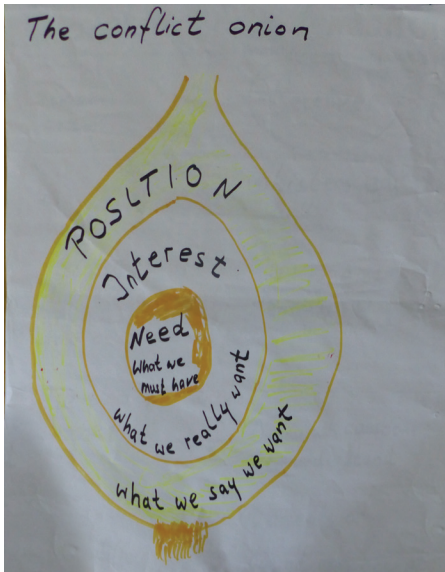 The conflict onion
POSITION
Interest
Need
What we
must have
what we really want
what we say we want